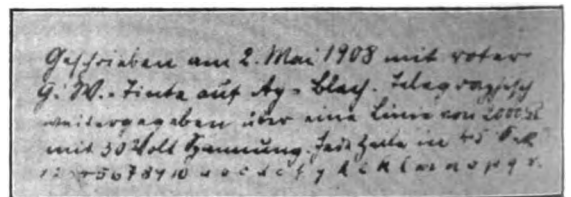 Geschrieben am 2. Mai 1908 mit roter
G. W.-Tinte auf Ag-Blech. Telegraphisch
weitergegeben über eine Linie von 2000 Ω
mit 30 Volt Spannung. Jede Zeile in 45 Sek
1 2 3 4 5 6 7 8 9 10 a b c d e f g h i k l m n o p q r.